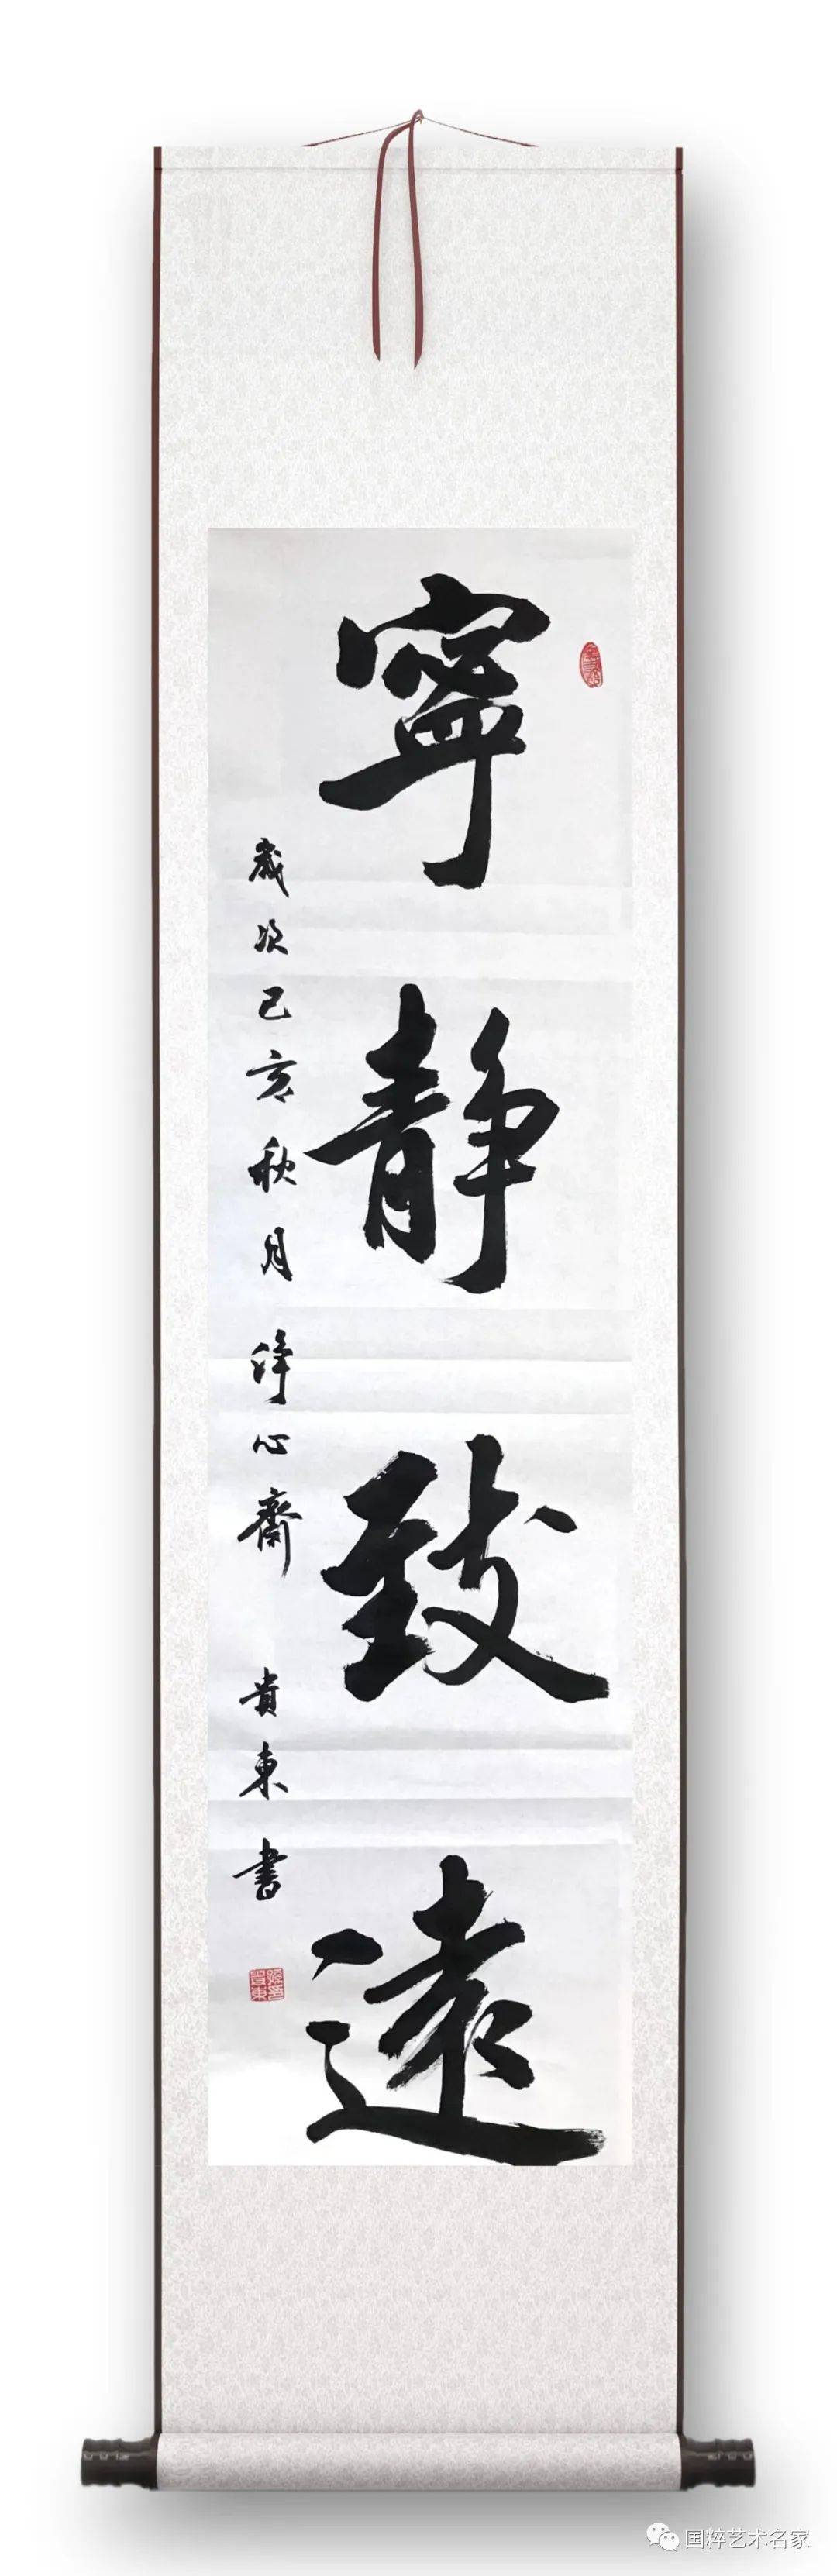 寧靜致遠
歲次己亥秋月淨心齋 貴東書
国粹艺术名家